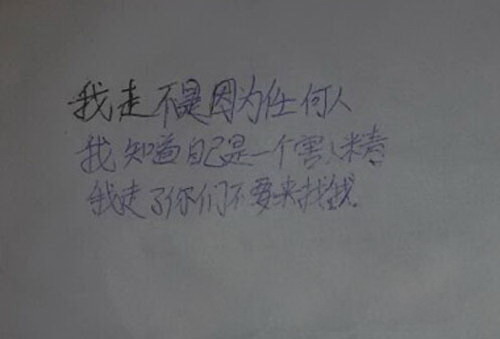 我走不是因为任何人
我知道自己是一个害人精
我走了你们不要来找我.